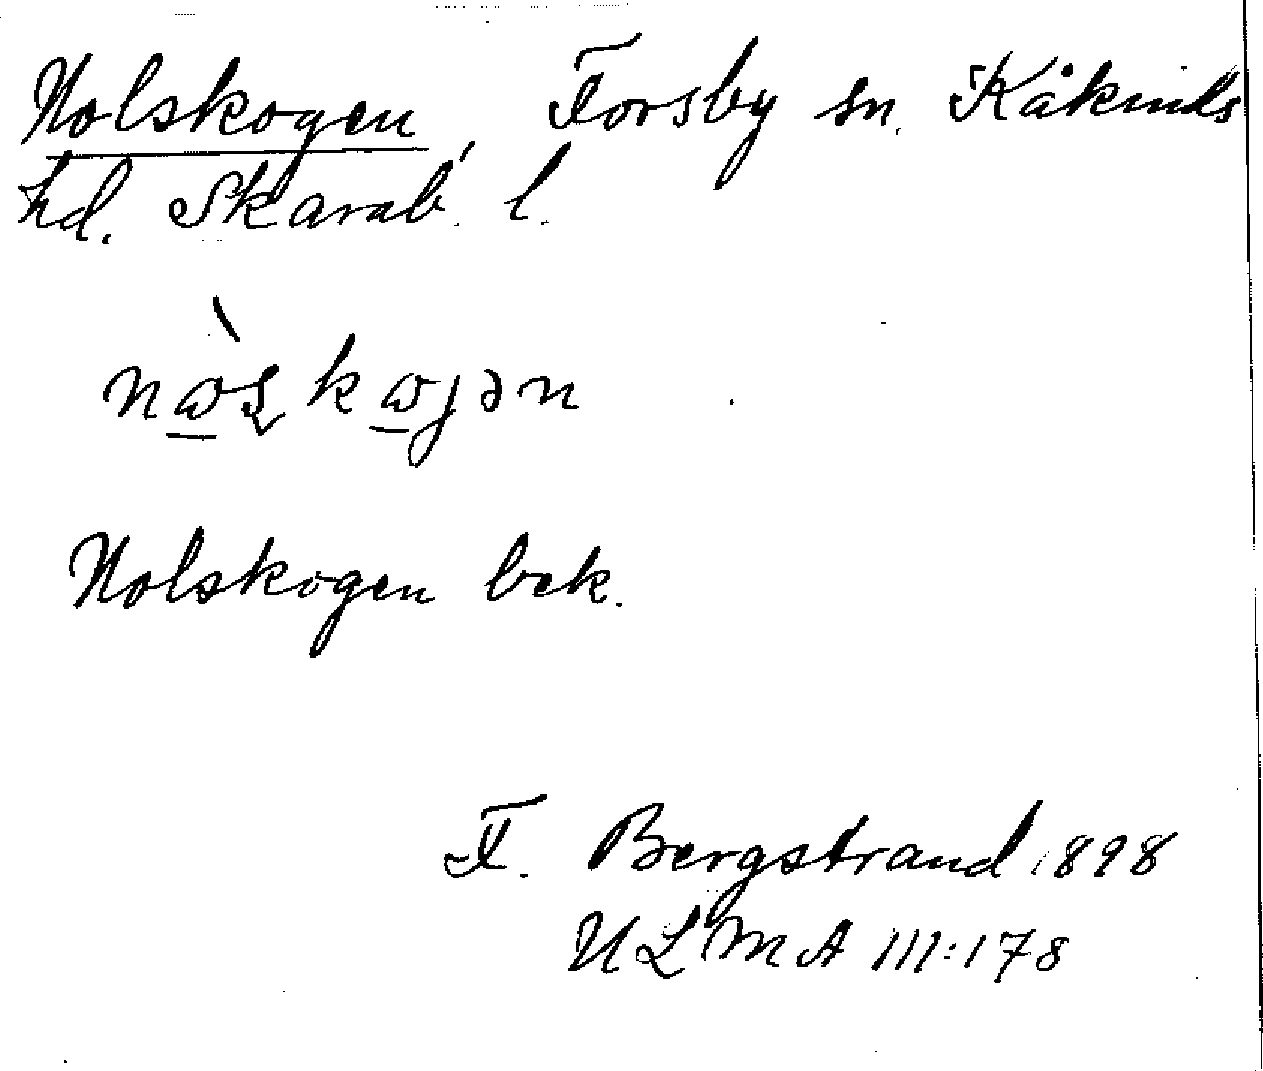 Nolskogen, Forsby sn. Kåkinds
hd. Skarab. l.
Nolskogen bek.
F. Bergstrand 1898
ULMA 111:178